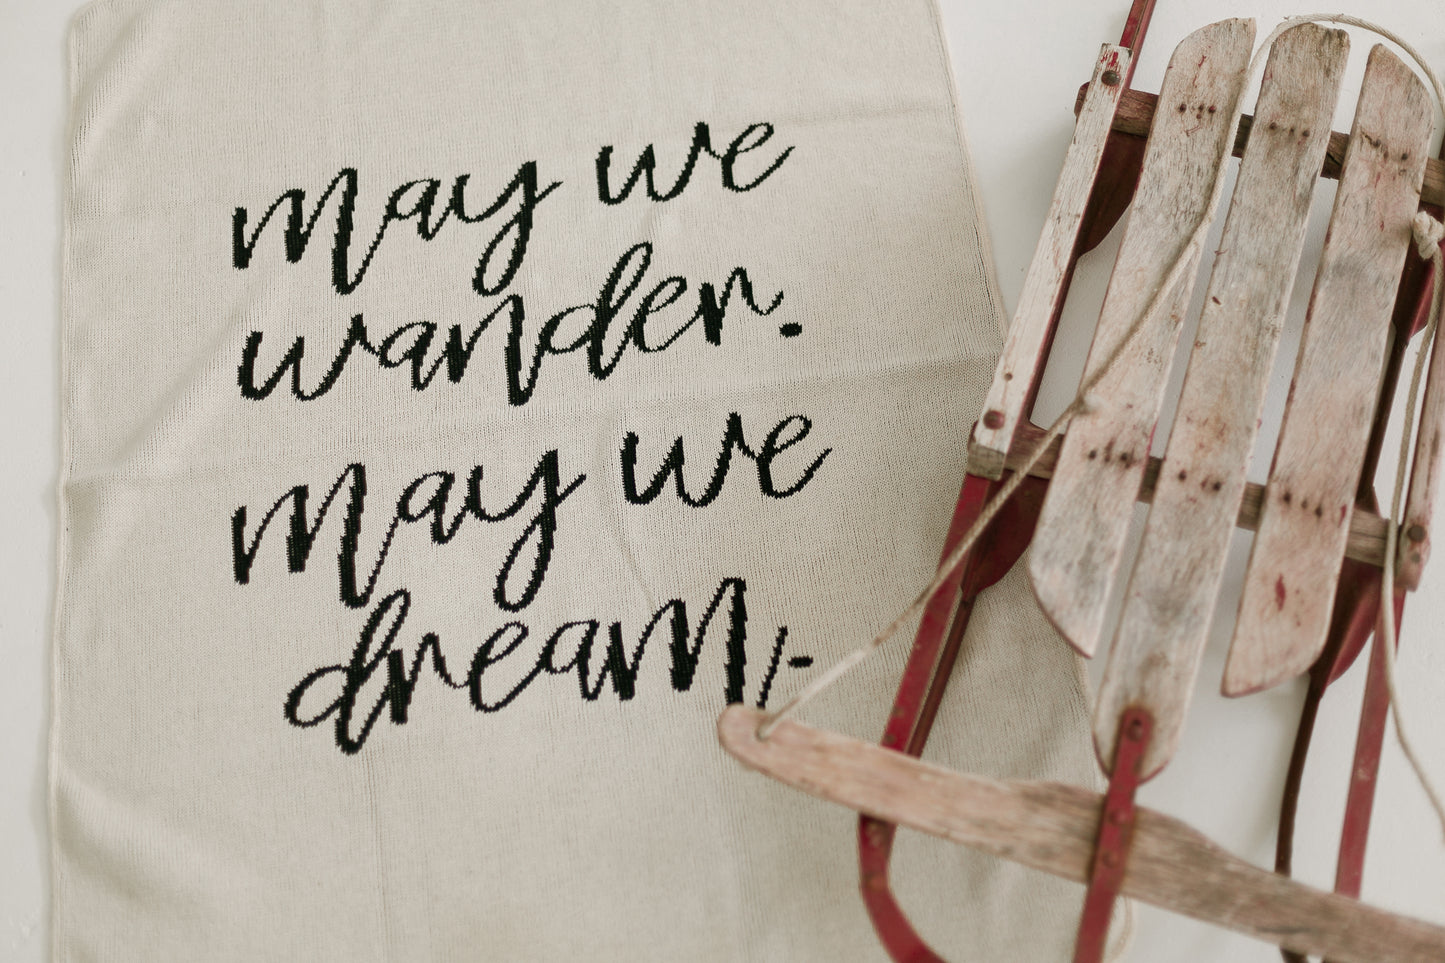 may we
wander.
may we
dream.